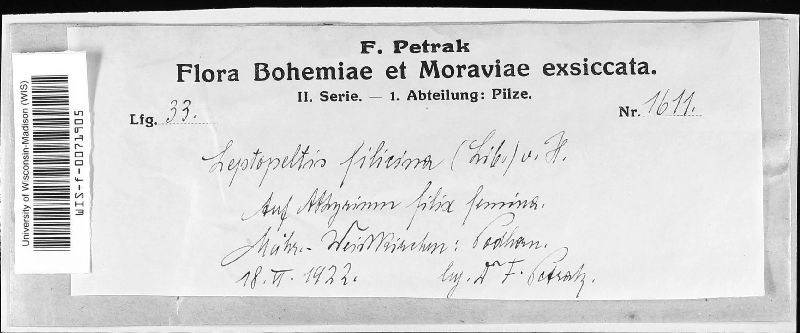 F. Petrak
Flora Bohemiae et Moraviae exsiccata.
II. Serie. — 1. Abteilung: Pilze.
Lfg. 33.
Nr. 1611.
Leptopeltis filicina (Lib.) v. H.
Auf Athyrium filix femina.
Mähr.-Weisskirchen: Podhorn.
18. VI. 1922. lg. Dr F. Petrak.
University of Wisconsin-Madison (WIS)
WIS-f-0071905